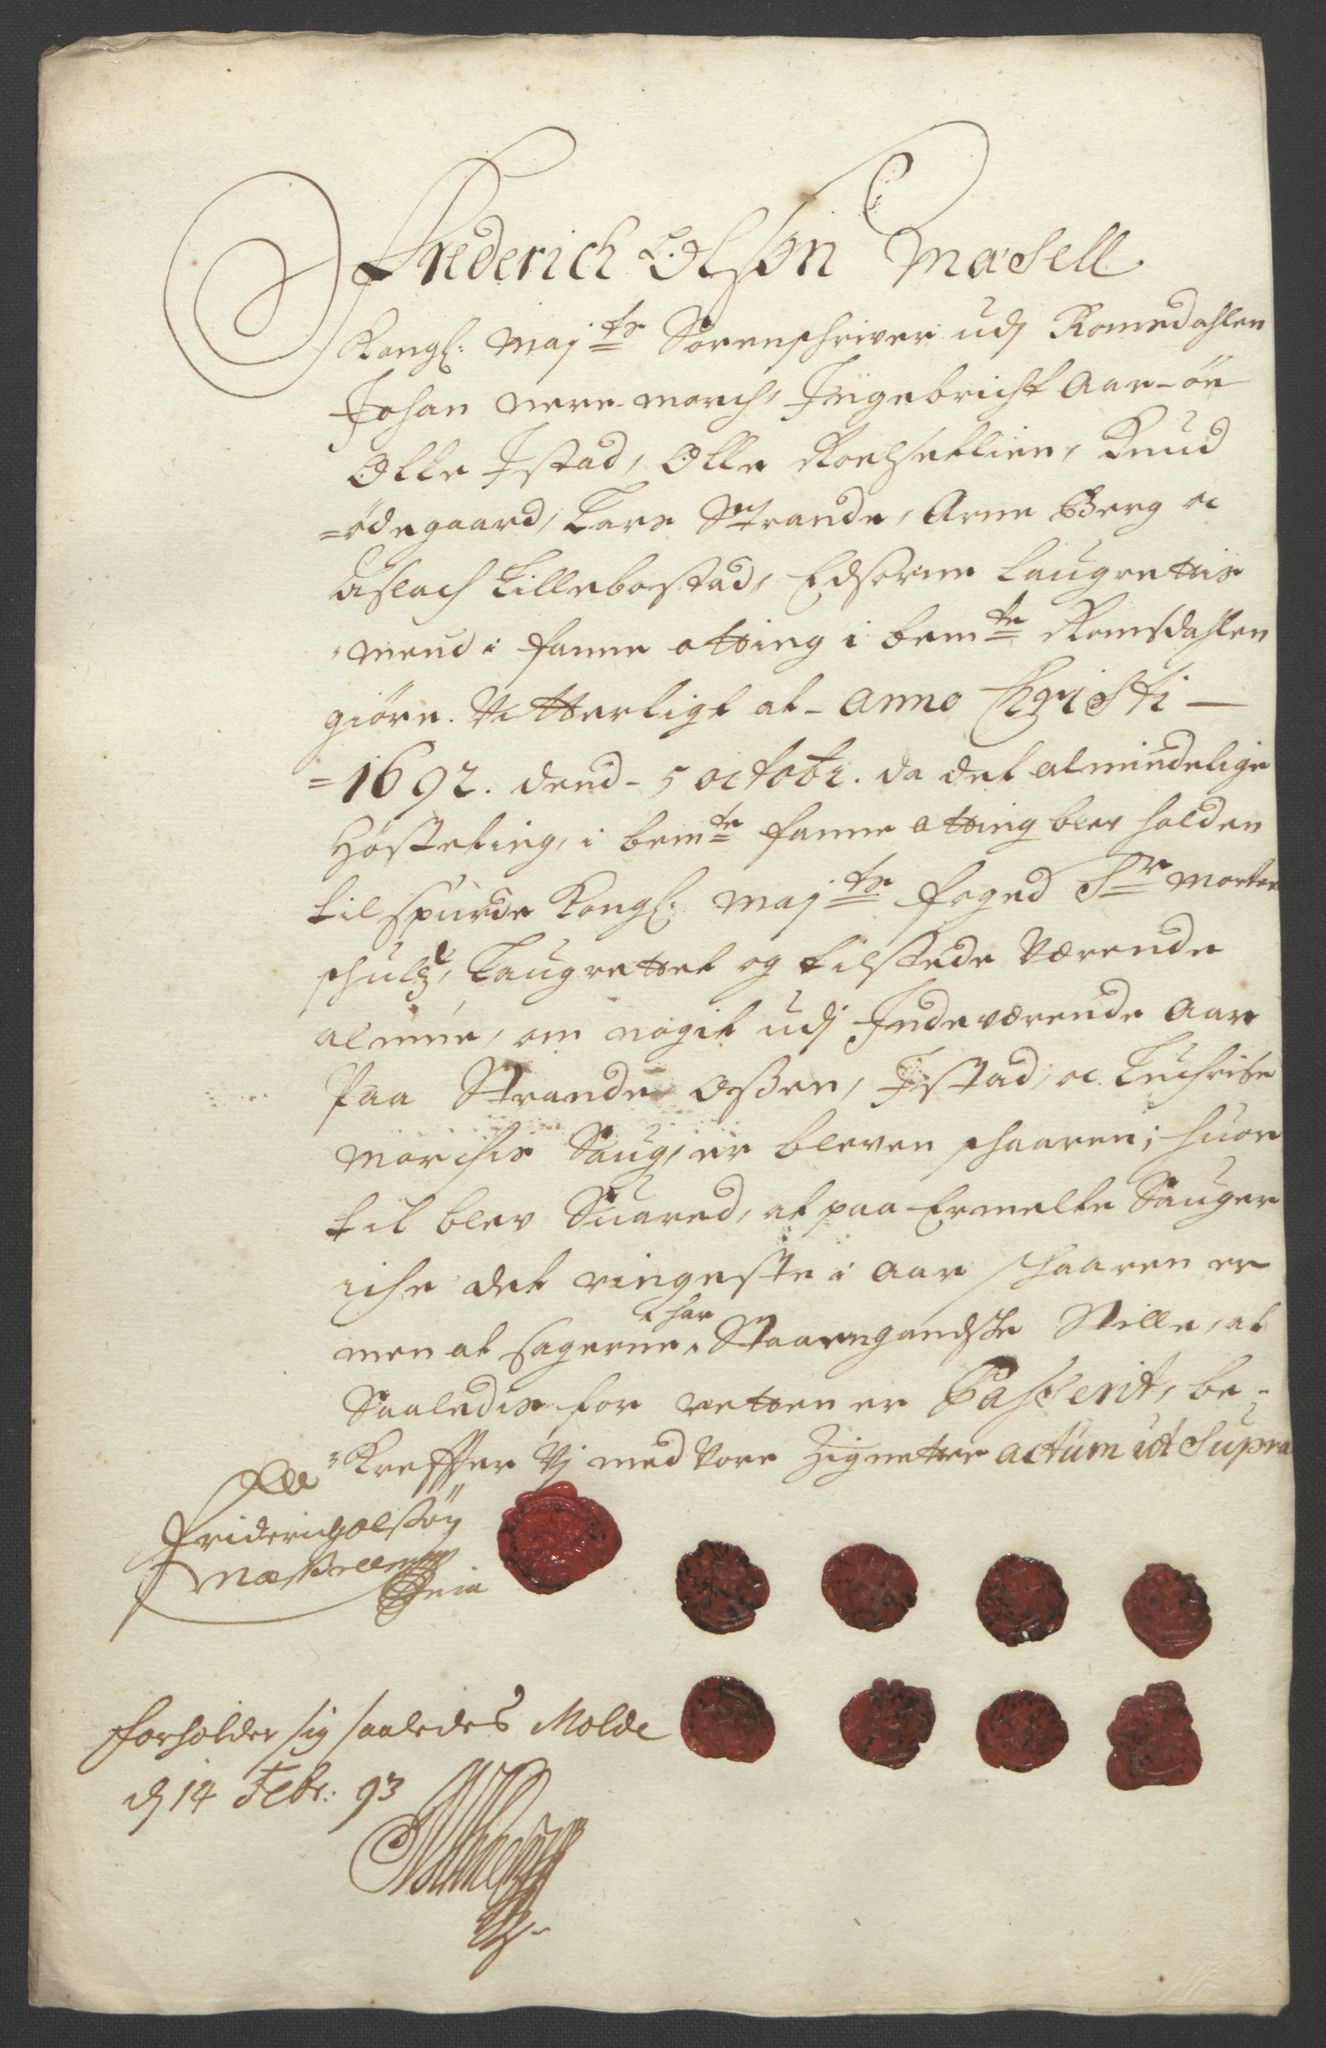 Frederich Olsøn Mæsell
Kongl: Maj:ts Sorenschriver udj Romsdahlen
Johan nere-march, Ingebricht Aar-öe
Olle Istad, Olle Roelsetlien, Knud
=ödegaard, Lars Strande, Arne Berg oc
Aslach Lillebostad, Edsorne Laugrettis
-mend i fanne otting i bem:te Romsdahlen
giöre Vitterligt at - anno Christi -
=1692. dend - 5 octobr. da det almindelige
Hösteting, i bem:te fanne otting blev holden
tilspurde Kongl: Maj:ts foged Sr Morten
schultz, Laugrettet og tilstede Værende
almue, om nogit udj Indeværende Aar
Paa Strande Oßen, Istad, oc Tuchrise
marchis Saug, er bleven schaaren; huor
til blev Suared, at paa Ermelte Sauger
iche det ringeste i Aar schaaren er
men at sagerne har Staaen gandske Stille, at
Saaledis for retten er Passerit, be-
-Kreffter Vj med Vore Zignetter actum ut Supra
Friderich olssøn
Mæssell
forholder sig saaledes Molde
dj 14 Febr: 93